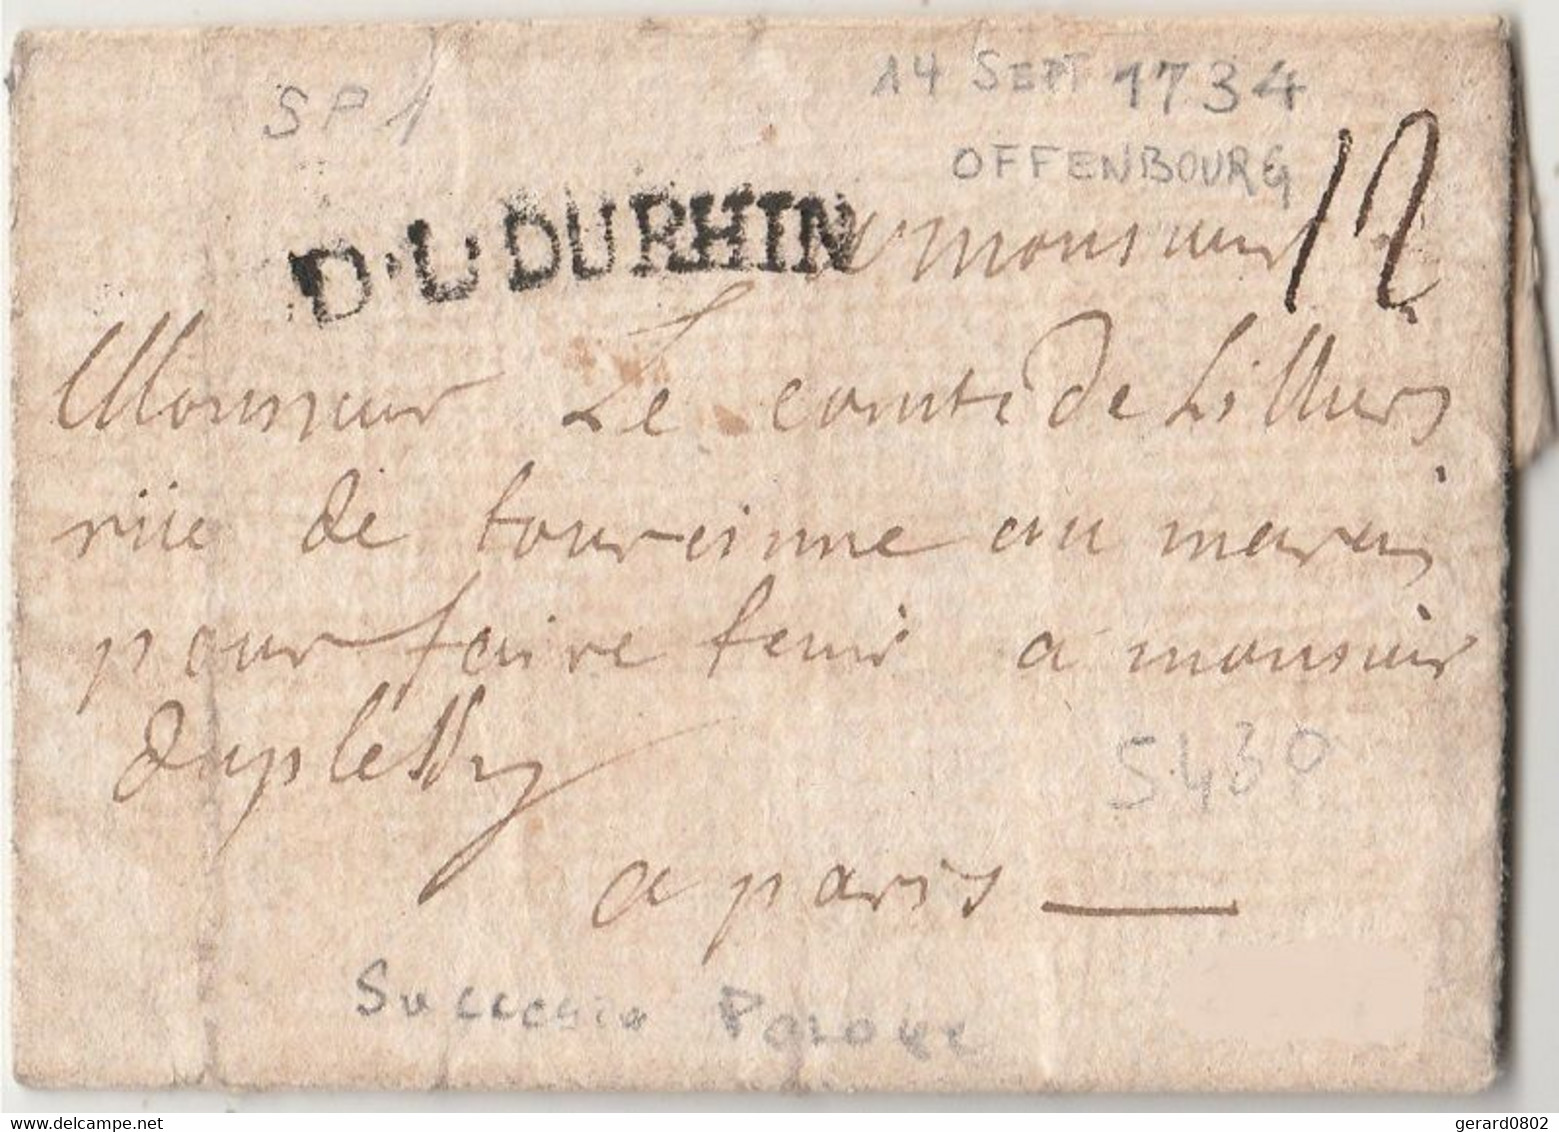 SP1
14 SEPT 1734
OFFENBOURG
D·L·DURHIN
a monsieur
12
Monsieur Le comte de Lilliers
rüe de tourainne au marais
pour faire tenir a monsieur
duplessy
5430
a paris
Succession Pologne
gerard0802
www.delcampe.net